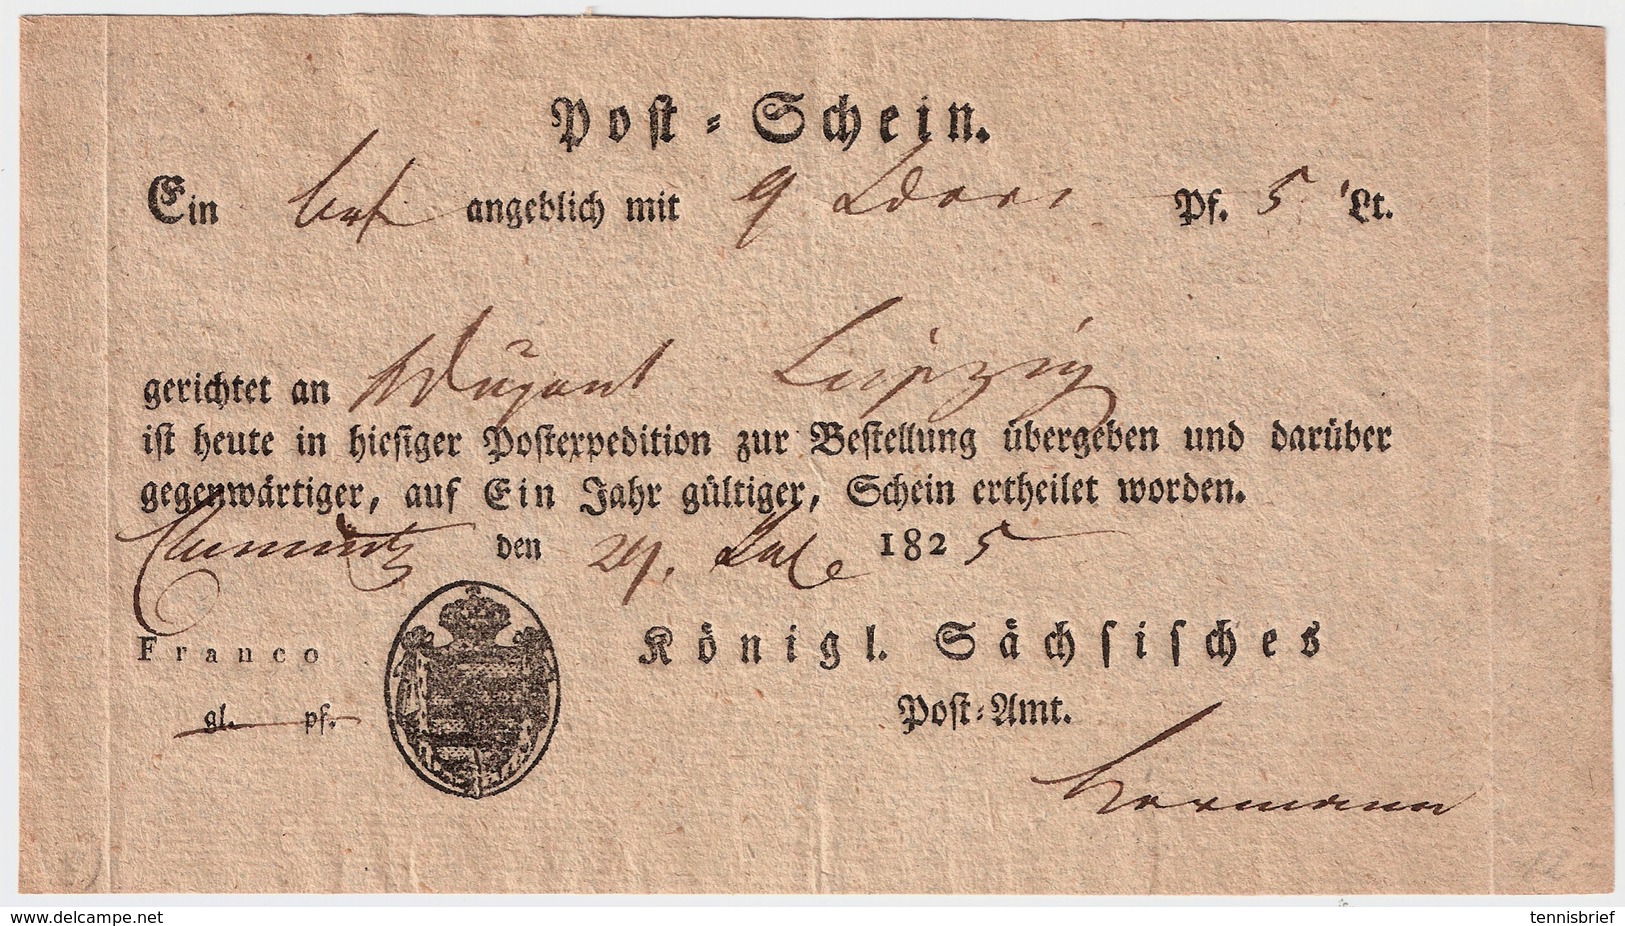 Post-Schein.
Ein brf angeblich mit 9 Pf. 5 Lt.
gerichtet an Leipzig
ist heute in hiesiger Postexpedition zur Bestellung übergeben und darüber
gegenwärtiger, auf Ein Jahr gültiger, Schein ertheilet worden.
Chemnitz den 29. 1825
Franco Königl. Sächsisches
gl. pf. Post-Amt.
delcampe.net
tennisbrief